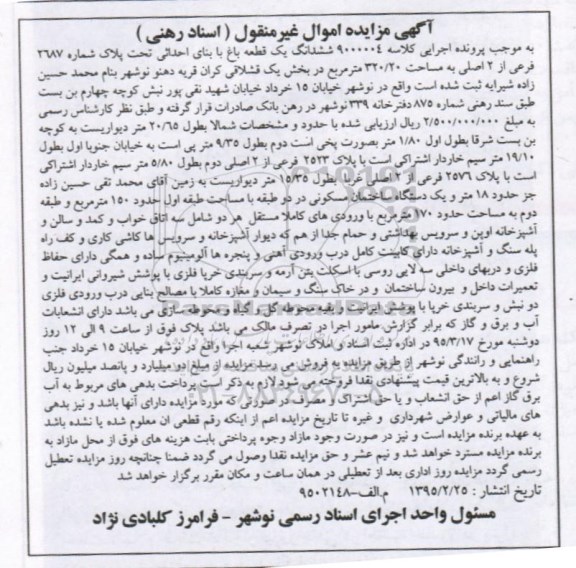 آگهی مزایده اموال غیرمنقول ( اسناد رهنی )
به موجب پرونده اجرایی کلاسه ۹۰۰۰۰۰۴ ششدانگ یک قطعه باغ با بنای احداثی تحت پلاک شماره ۲۶۸۷
فرعی از ۲ اصلی به مساحت ۳۲۰/۲۰ مترمربع در بخش یک قشلاقی کران قریه دهنو نوشهر بنام محمد حسین
زاده شیرایه ثبت شده است واقع در نوشهر خیابان ۱۵ خرداد خیابان شهید نقی پور نبش کوچه چهارم بن بست
طبق سند رهنی شماره ۸۷۵ دفترخانه ۳۳۹ نوشهر در رهن بانک صادرات قرار گرفته و طبق نظر کارشناس رسمی
به مبلغ ۲/۵۰۰/۰۰۰/۰۰۰ ریال ارزیابی شده با حدود و مشخصات شمالا بطول ۲۰/۶۵ متر دیواریست به کوچه
بن بست شرقا بطول اول ۱/۸۰ متر بصورت پخی است دوم بطول ۹/۳۵ متر پی است به خیابان جنوبا اول بطول
۱۹/۱۰ متر سیم خاردار اشتراکی است با پلاک ۲۵۲۳ فرعی از ۲ اصلی دوم بطول ۵/۸۰ متر سیم خاردار اشتراکی
است با پلاک ۲۵۷۶ فرعی از ۲ اصلی غربا بطول ۱۵/۳۵ متر دیواریست به زمین آقای محمد تقی حسین زاده
جز حدود ۱۸ متر و یک دستگاه ساختمان مسکونی در دو طبقه با مساحت طبقه اول حدود ۱۵۰ مترمربع و طبقه
دوم به مساحت حدود ۱۷۰ مترمربع با ورودی های کاملا مستقل هر دو شامل سه اتاق خواب و کمد و سالن و
آشپزخانه اوپن و سرویس بهداشتی و حمام جدا از هم که دیوار آشپزخانه و سرویس ها کاشی کاری و کف راه
پله سنگ و آشپزخانه دارای کابینت کامل درب ورودی آهنی و پنجره ها آلومینیوم ساده و همگی دارای حفاظ
فلزی و دربهای داخلی سه لایی روسی با اسکلت بتن آرمه و سربندی خرپا فلزی با پوشش شیروانی ایرانیت و
تعمیرات داخل و بیرون ساختمان و در خاک سنگ و سیمان و مغازه کاملا با مصالح بنایی درب ورودی فلزی
دو نبش و سربندی خرپا با پوشش ایرانیت و بقیه محوطه گل و گیاه و محوطه سازی می باشد دارای انشعابات
آب و برق و گاز که برابر گزارش مامور اجرا در تصرف مالک می باشد پلاک فوق از ساعت ۹ الی ۱۲ روز
دوشنبه مورخ ۹۵/۳/۱۷ در اداره ثبت اسناد و املاک نوشهر شعبه اجرا واقع در نوشهر خیابان ۱۵ خرداد جنب
راهنمایی و رانندگی نوشهر از طریق مزایده به فروش می رسد مزایده از مبلغ دو میلیارد و پانصد میلیون ریال
شروع و به بالاترین قیمت پیشنهادی نقدا فروخته می شود لازم به ذکر است پرداخت بدهی های مربوط به آب
برق گاز اعم از حق انشعاب و یا حق اشتراک و مصرف در صورتی که مورد مزایده دارای آنها باشد و نیز بدهی
های مالیاتی و عوارض شهرداری و غیره تا تاریخ مزایده اعم از اینکه رقم قطعی ان معلوم شده یا نشده باشد
به عهده برنده مزایده است و نیز در صورت وجود مازاد وجوه پرداختی بابت هزینه های فوق از محل مازاد به
برنده مزایده مسترد خواهد شد و نیم عشر و حق مزایده نقدا وصول می گردد ضمنا چنانچه روز مزایده تعطیل
رسمی گردد مزایده روز اداری بعد از تعطیلی در همان ساعت و مکان مقرر برگزار خواهد شد
تاریخ انتشار : ۱۳۹۵/۲/۲۵ م.الف-۹۵۰۲۱۴۸
مسئول واحد اجرای اسناد رسمی نوشهر - فرامرز کلبادی نژاد